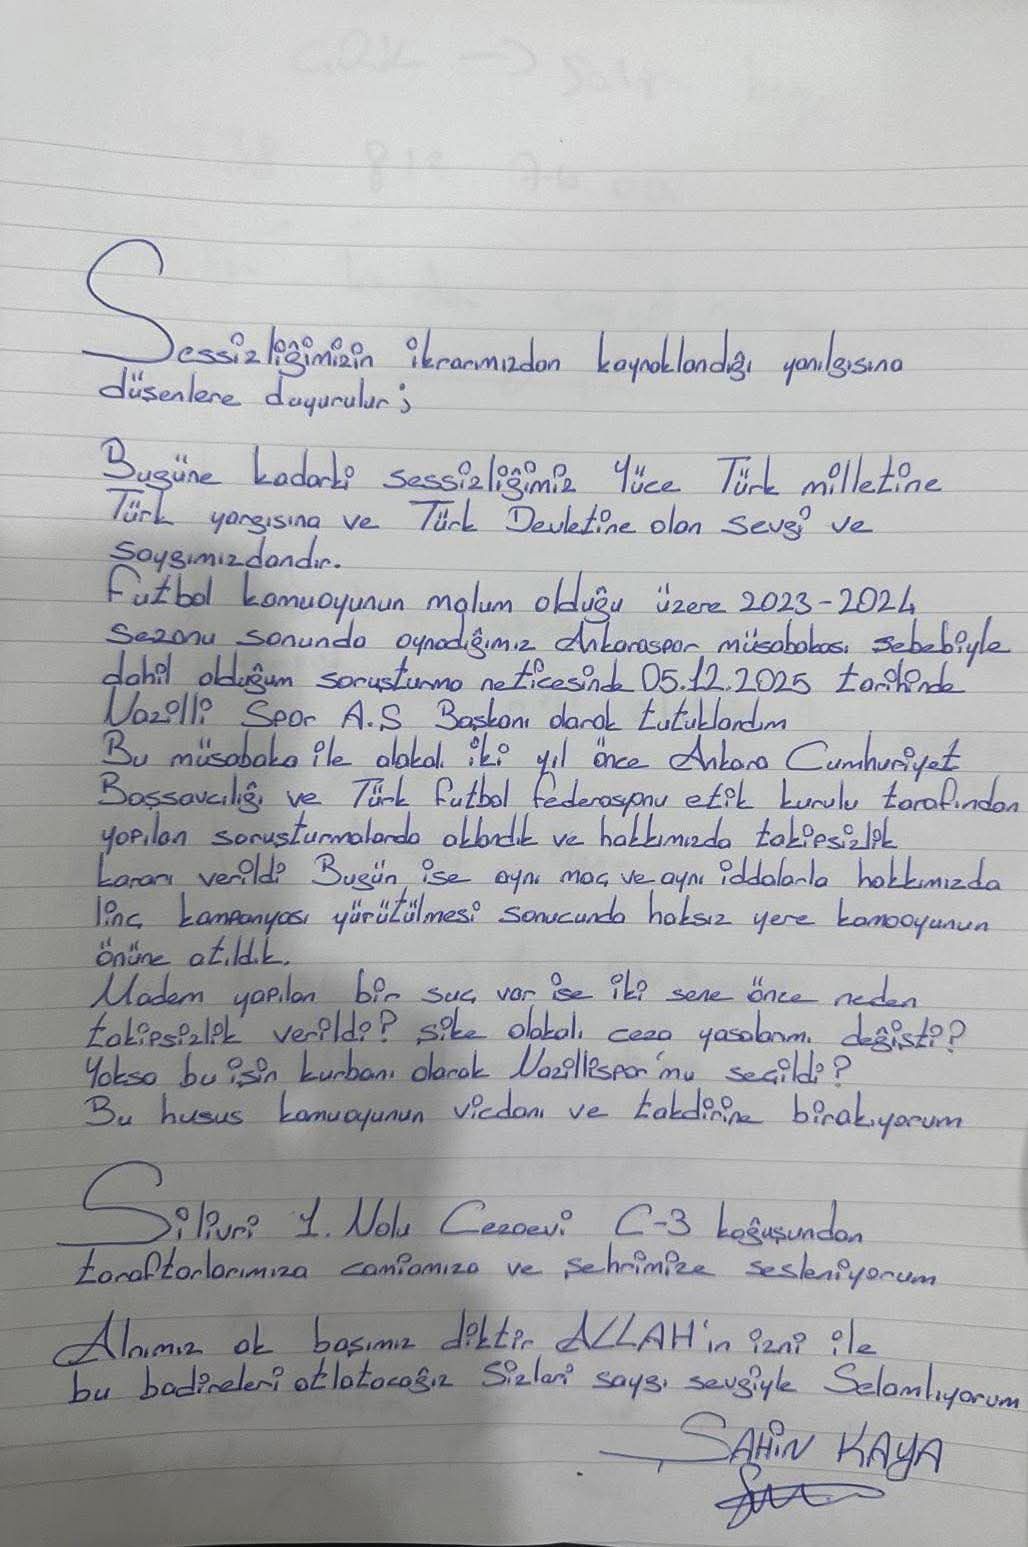 Sessizliğimizin ikrarımızdan kaynaklandığı yanılgısına
düşenlere duyurulur;
Bugüne kadarki sessizliğimiz Yüce Türk milletine
Türk yargısına ve Türk Devletine olan sevgi ve
saygımızdandır.
Futbol kamuoyunun malum olduğu üzere 2023-2024
Sezonu sonunda oynadığımız Ankaraspor müsabakası sebebiyle
dahil olduğum soruşturma neticesinde 05.12.2025 tarihinde
Nazilli Spor A.Ş Başkanı olarak tutuklandım
Bu müsabaka ile alakalı iki yıl önce Ankara Cumhuriyet
Başsavcılığı ve Türk futbol federasyonu etik kurulu tarafından
yapılan soruşturmalarda aklandık ve hakkımızda takipsizlik
kararı verildi Bugün ise aynı maç ve aynı iddalarla hakkımızda
linç kampanyası yürütülmesi sonucunda haksız yere kamooyunun
önüne atıldık.
Madem yapılan bir suç var ise iki sene önce neden
takipsizlik verildi? şike alakalı ceza yasalarımı değişti?
Yoksa bu işin kurbanı olarak Nazillispor'mu seçildi?
Bu husus kamuoyunun vicdanı ve takdirine birakıyorum
Silivri 1. Nolu Cezaevi C-3 koğuşundan
taraftarlarımıza camiamıza ve şehrimize sesleniyorum
Alnımız ak başımız diktir ALLAH'in izni ile
bu badireleri atlatacağız Sizleri saygı sevgiyle Selamlıyorum
ŞAHİN KAYA